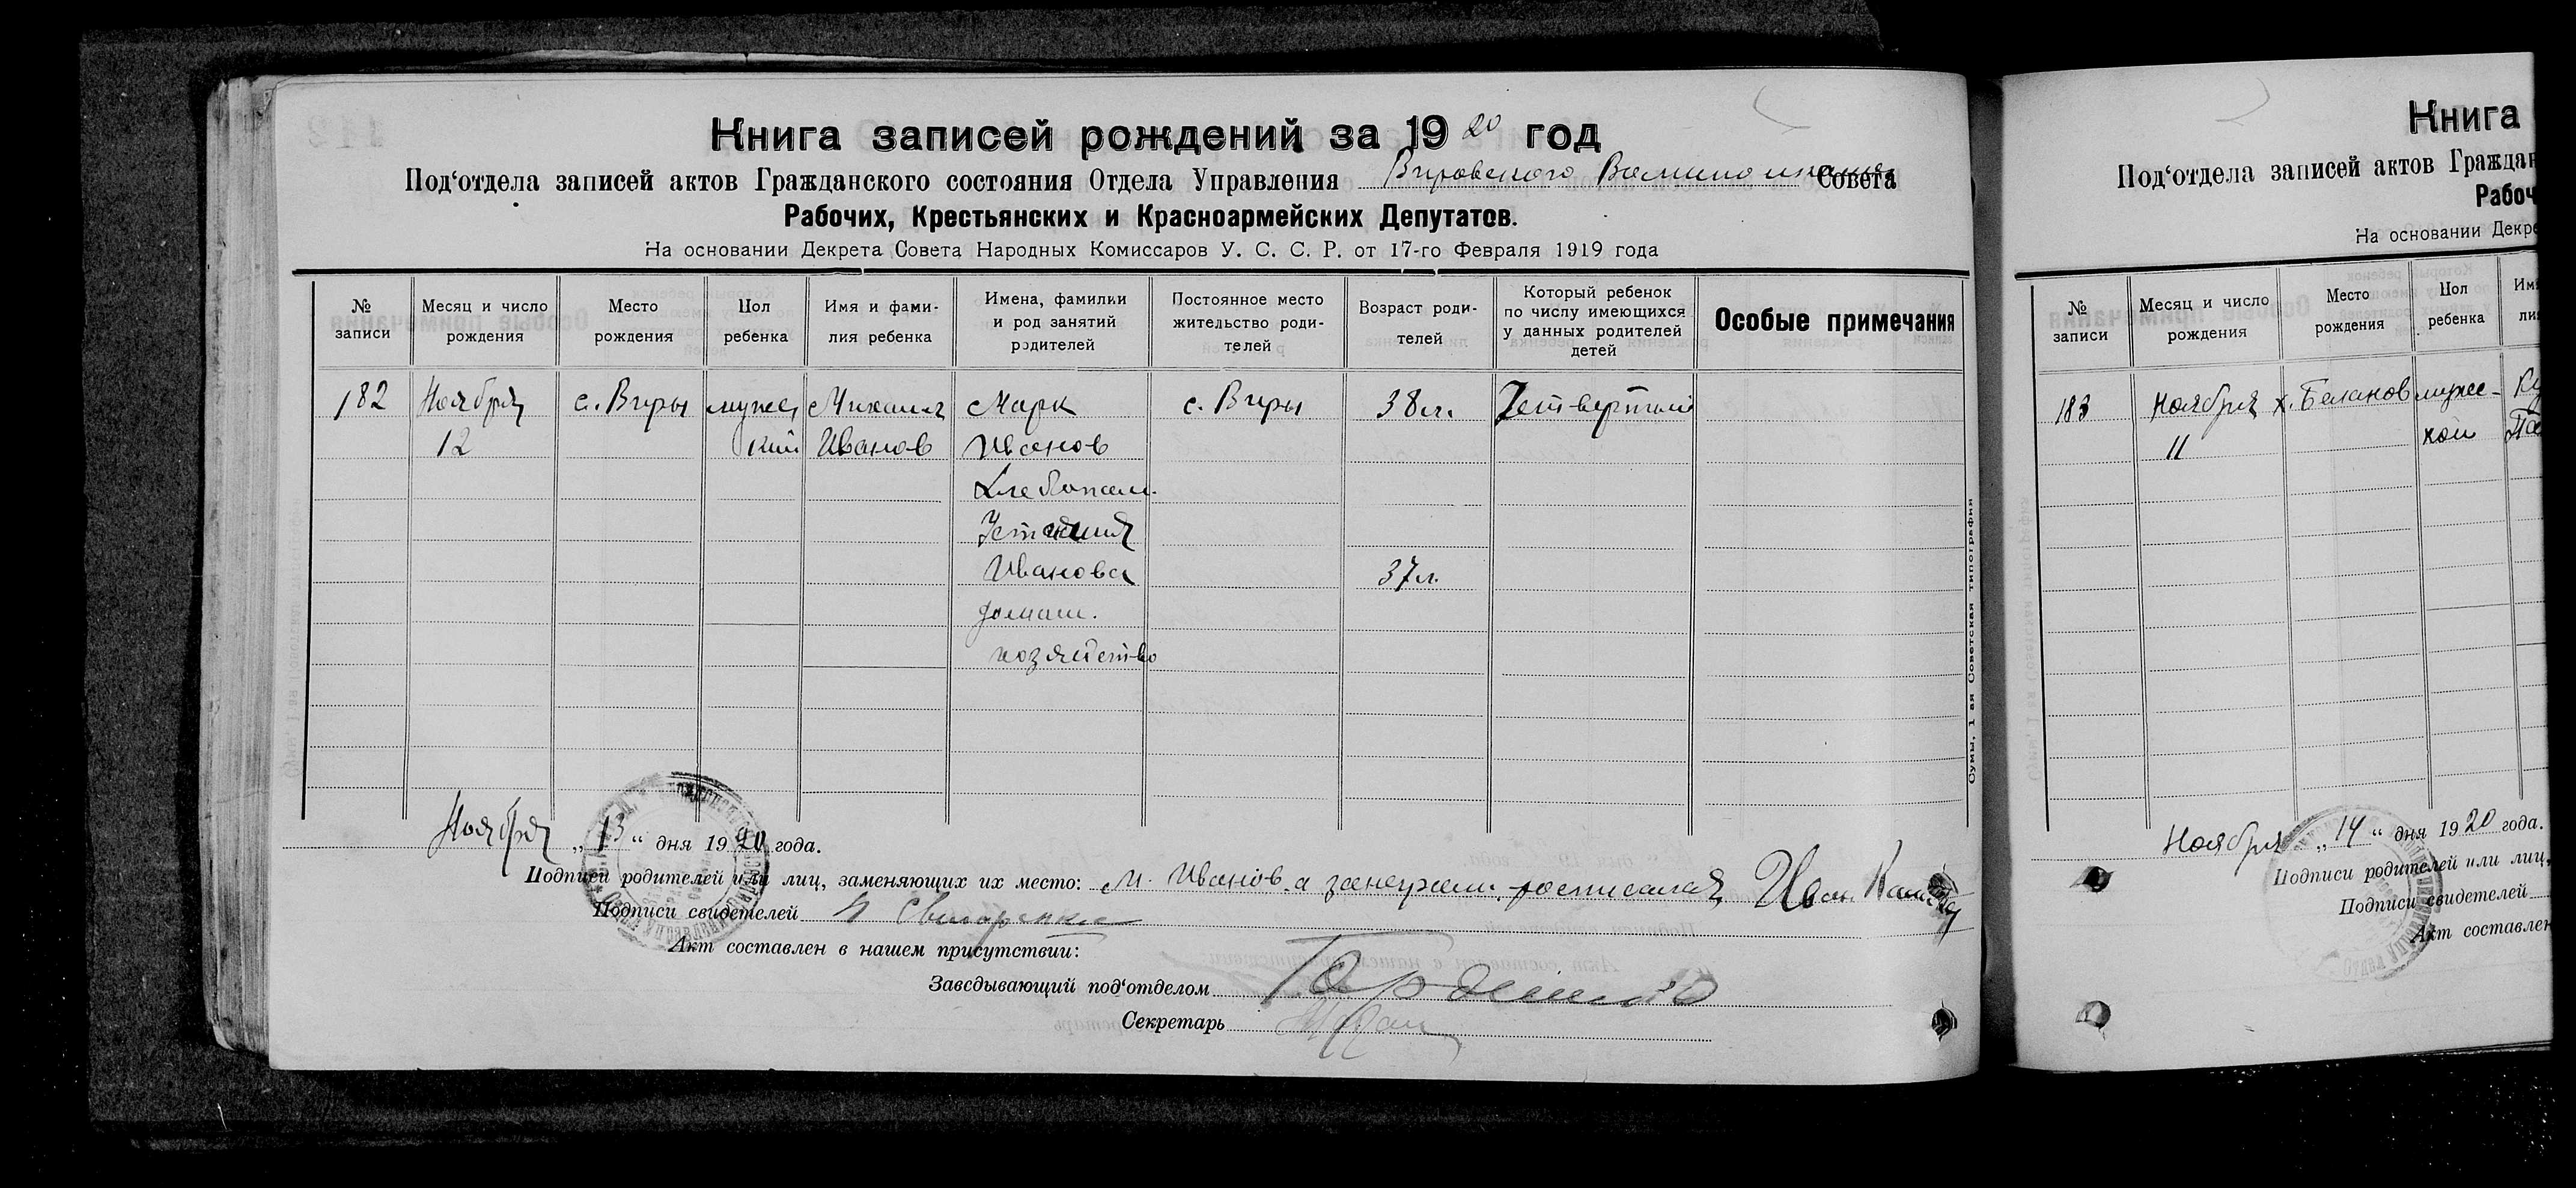 Книга записей рождений за 1920 год
Под‘отдела записей актов Гражданского состояния Отдела Управления Вировского Совета
Рабочих, Крестьянских и Красноармейских Депутатов.
На основании Декрета Совета Народных Комиссаров У. С. С. Р. от 17-го Февраля 1919 года
№ записи
Месяц и число рождения
Место рождения
Пол ребенка
Имя и фами- лия ребенка
Имена, фамилии и род занятий родителей
Постоянное место жительство роди- телей
Возраст роди- телей
Который ребенок по числу имеющихся у данных родителей детей
Особые примечания
182 Ноября с. Виры мужес Михаил Марк с. Виры 38 л. Четвертый
12 кий Иванов Иванов
Хлебопаш.
Устиния
Иванова 37 л.
домаш.
хозяйство
Ноября „13“ дня 1920 года.
Подписи родителей или лиц, заменяющих их место: М. Иванов а за неграм. росписался Иван
Подписи свидетелей
Акт составлен в нашем присутствии:
Заведывающий под‘отделом
Секретарь
Сумы, 1 ая Советская типография
Книга
Под‘отдела записей актов Граждан
Рабоч
На основании Декре
№ записи
Месяц и число рождения
Место рождения
Пол ребенка
Им
ли
183 Ноября х. Беланов мужес-
11 кой
Ноября „14“ дня 1920 года.
Подписи родителей или лиц,
Подписи свидетелей
Акт составлен